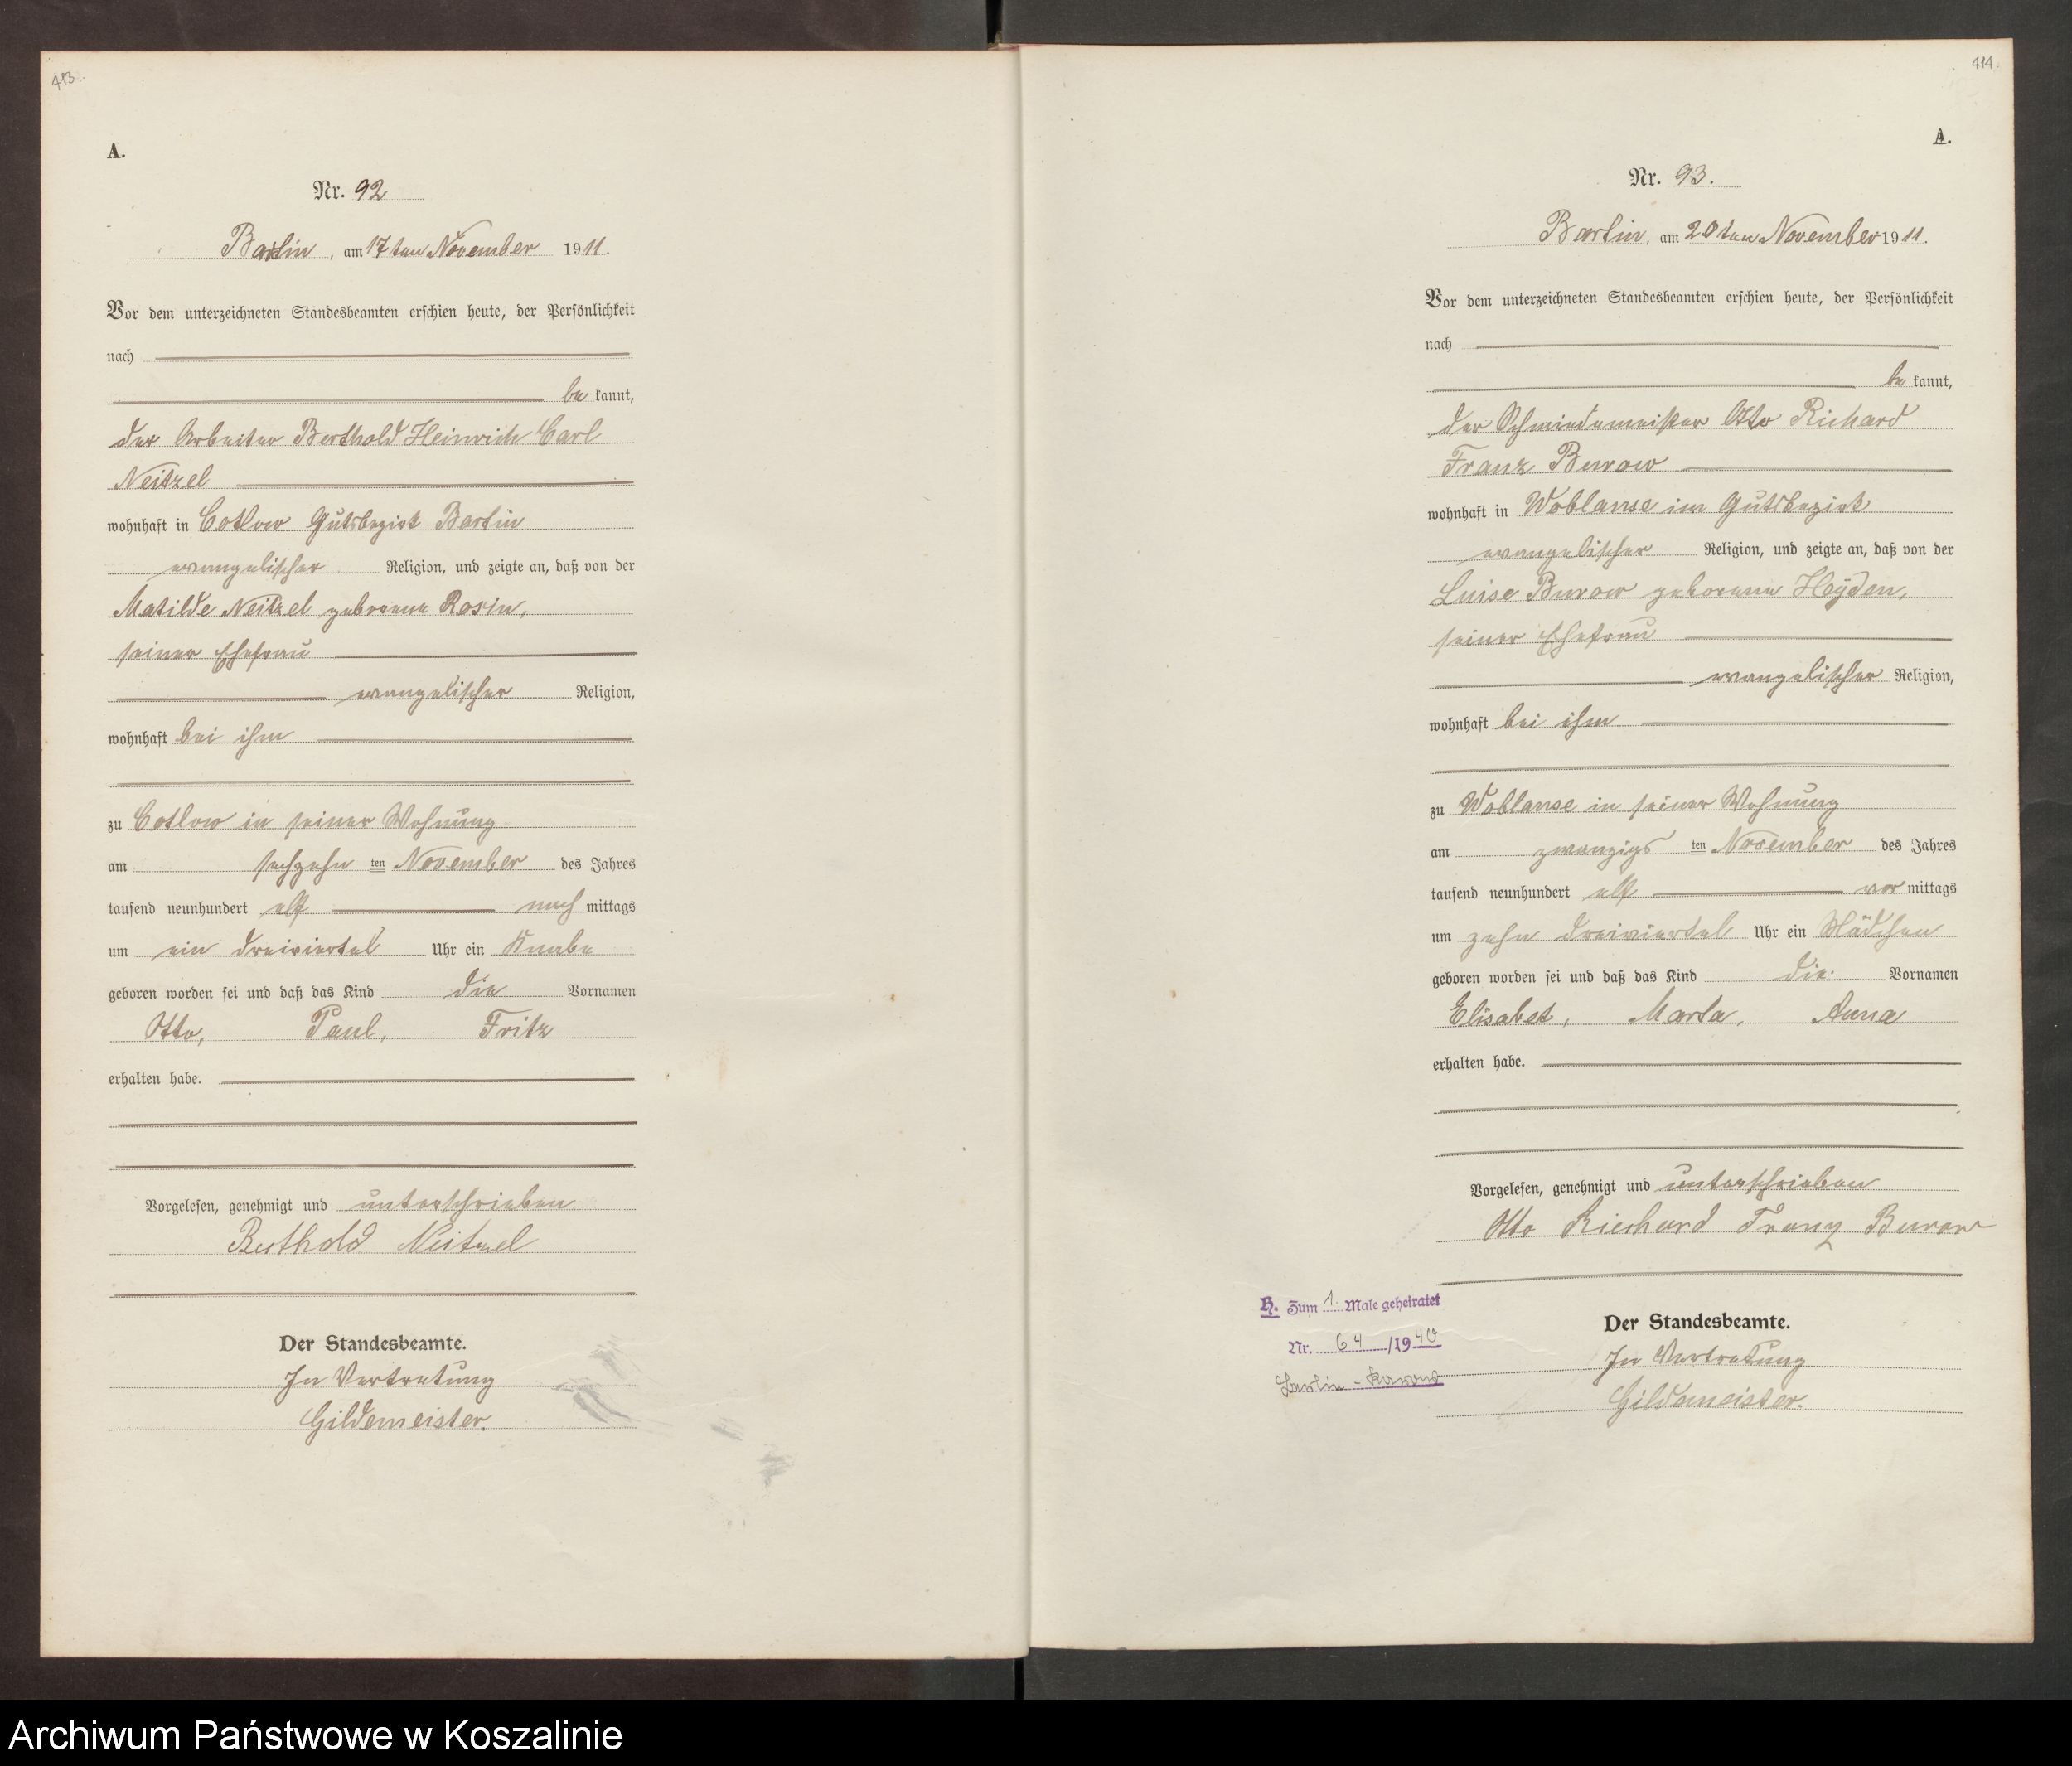 413.
A.
Nr. 92
Bartin, am 17ten November 1911.
Vor dem unterzeichneten Standesbeamten erschien heute, der Persönlichkeit
nach
be kannt,
der Arbeiter Berthold Heinrich Carl
Neitzel
wohnhaft in Cotlow Gutsbezirk Bartin
evangelischer Religion, und zeigte an, daß von der
Matilde Neitzel geborene Rosin,
seiner Ehefrau
evangelischer Religion,
wohnhaft bei ihm
zu Cotlow in seiner Wohnung
am sechzehn ten November des Jahres
tausend neunhundert elf nach mittags
um ein dreiviertel Uhr ein Knabe
geboren worden sei und daß das Kind die Vornamen
Otto, Paul, Fritz
erhalten habe.
Vorgelesen, genehmigt und unterschrieben
Berthold Neitzel
Der Standesbeamte.
In Vertretung
Gildemeister.
414.
A.
Nr. 93.
Bartin, am 20ten November 1911.
Vor dem unterzeichneten Standesbeamten erschien heute, der Persönlichkeit
nach
be kannt,
der Schmiedemeister Otto Richard
Franz Burow
wohnhaft in Woblanse im Gutsbezirk
evangelischer Religion, und zeigte an, daß von der
Luise Burow geborene Heÿden,
seiner Ehefrau
evangelischer Religion,
wohnhaft bei ihm
zu Woblanse in seiner Wohnung
am zwanzigs ten November des Jahres
tausend neunhundert elf vor mittags
um zehn dreiviertel Uhr ein Mädchen
geboren worden sei und daß das Kind die Vornamen
Elisabet, Marta, Anna
erhalten habe.
Vorgelesen, genehmigt und unterschrieben
Otto Riechard Franz Burow
H. Zum 1. Male geheiratet
Nr. 64 /1940
Berlin -
Der Standesbeamte.
In Vertretung
Gildemeister.
Archiwum Państwowe w Koszalinie